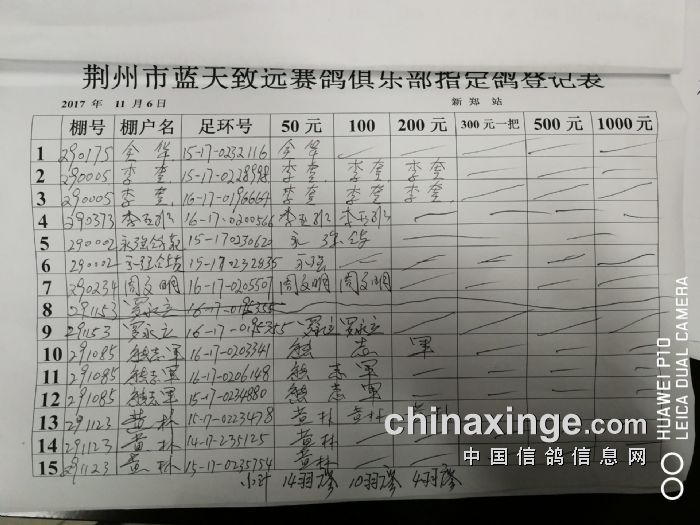 荆州市蓝天致远赛鸽俱乐部指定鸽登记表
2017 年 11 月 6 日 新 郑 站
棚号 棚户名 足环号 50 元 100 200 元 300 元一把 500 元 1000 元
1 290175 全华 15-17-0232116 全华
2 290005 李奎 15-17-0228998 李奎 李奎 李奎
3 290005 李奎 16-17-0196664 李奎 李奎 李奎
4 290373 16-17-0200566
5 290002 15-17-0230620
6 290002 15-17-0232835
7 290234 周文明 16-17-0205507 周文明 周文明
8 291153 罗永立 16-17-0195355
9 291153 罗永立 16-17-0195355 罗永立 罗永立
10 291085 熊志軍 16-17-0203341 熊 志 軍
11 291085 熊志軍 16-17-0206148 熊 志 軍
12 291085 熊志軍 15-17-0234880 熊 志 軍
13 291123 黄林 15-17-0223478 黄林 黄林
14 291123 黄林 14-17-235125 黄林
15 291123 黄林 15-17-0235754 黄林
小计 14羽 10羽 4羽
chinaxinge.com
中国信鸽信息网
HUAWEI P10
LEICA DUAL CAMERA